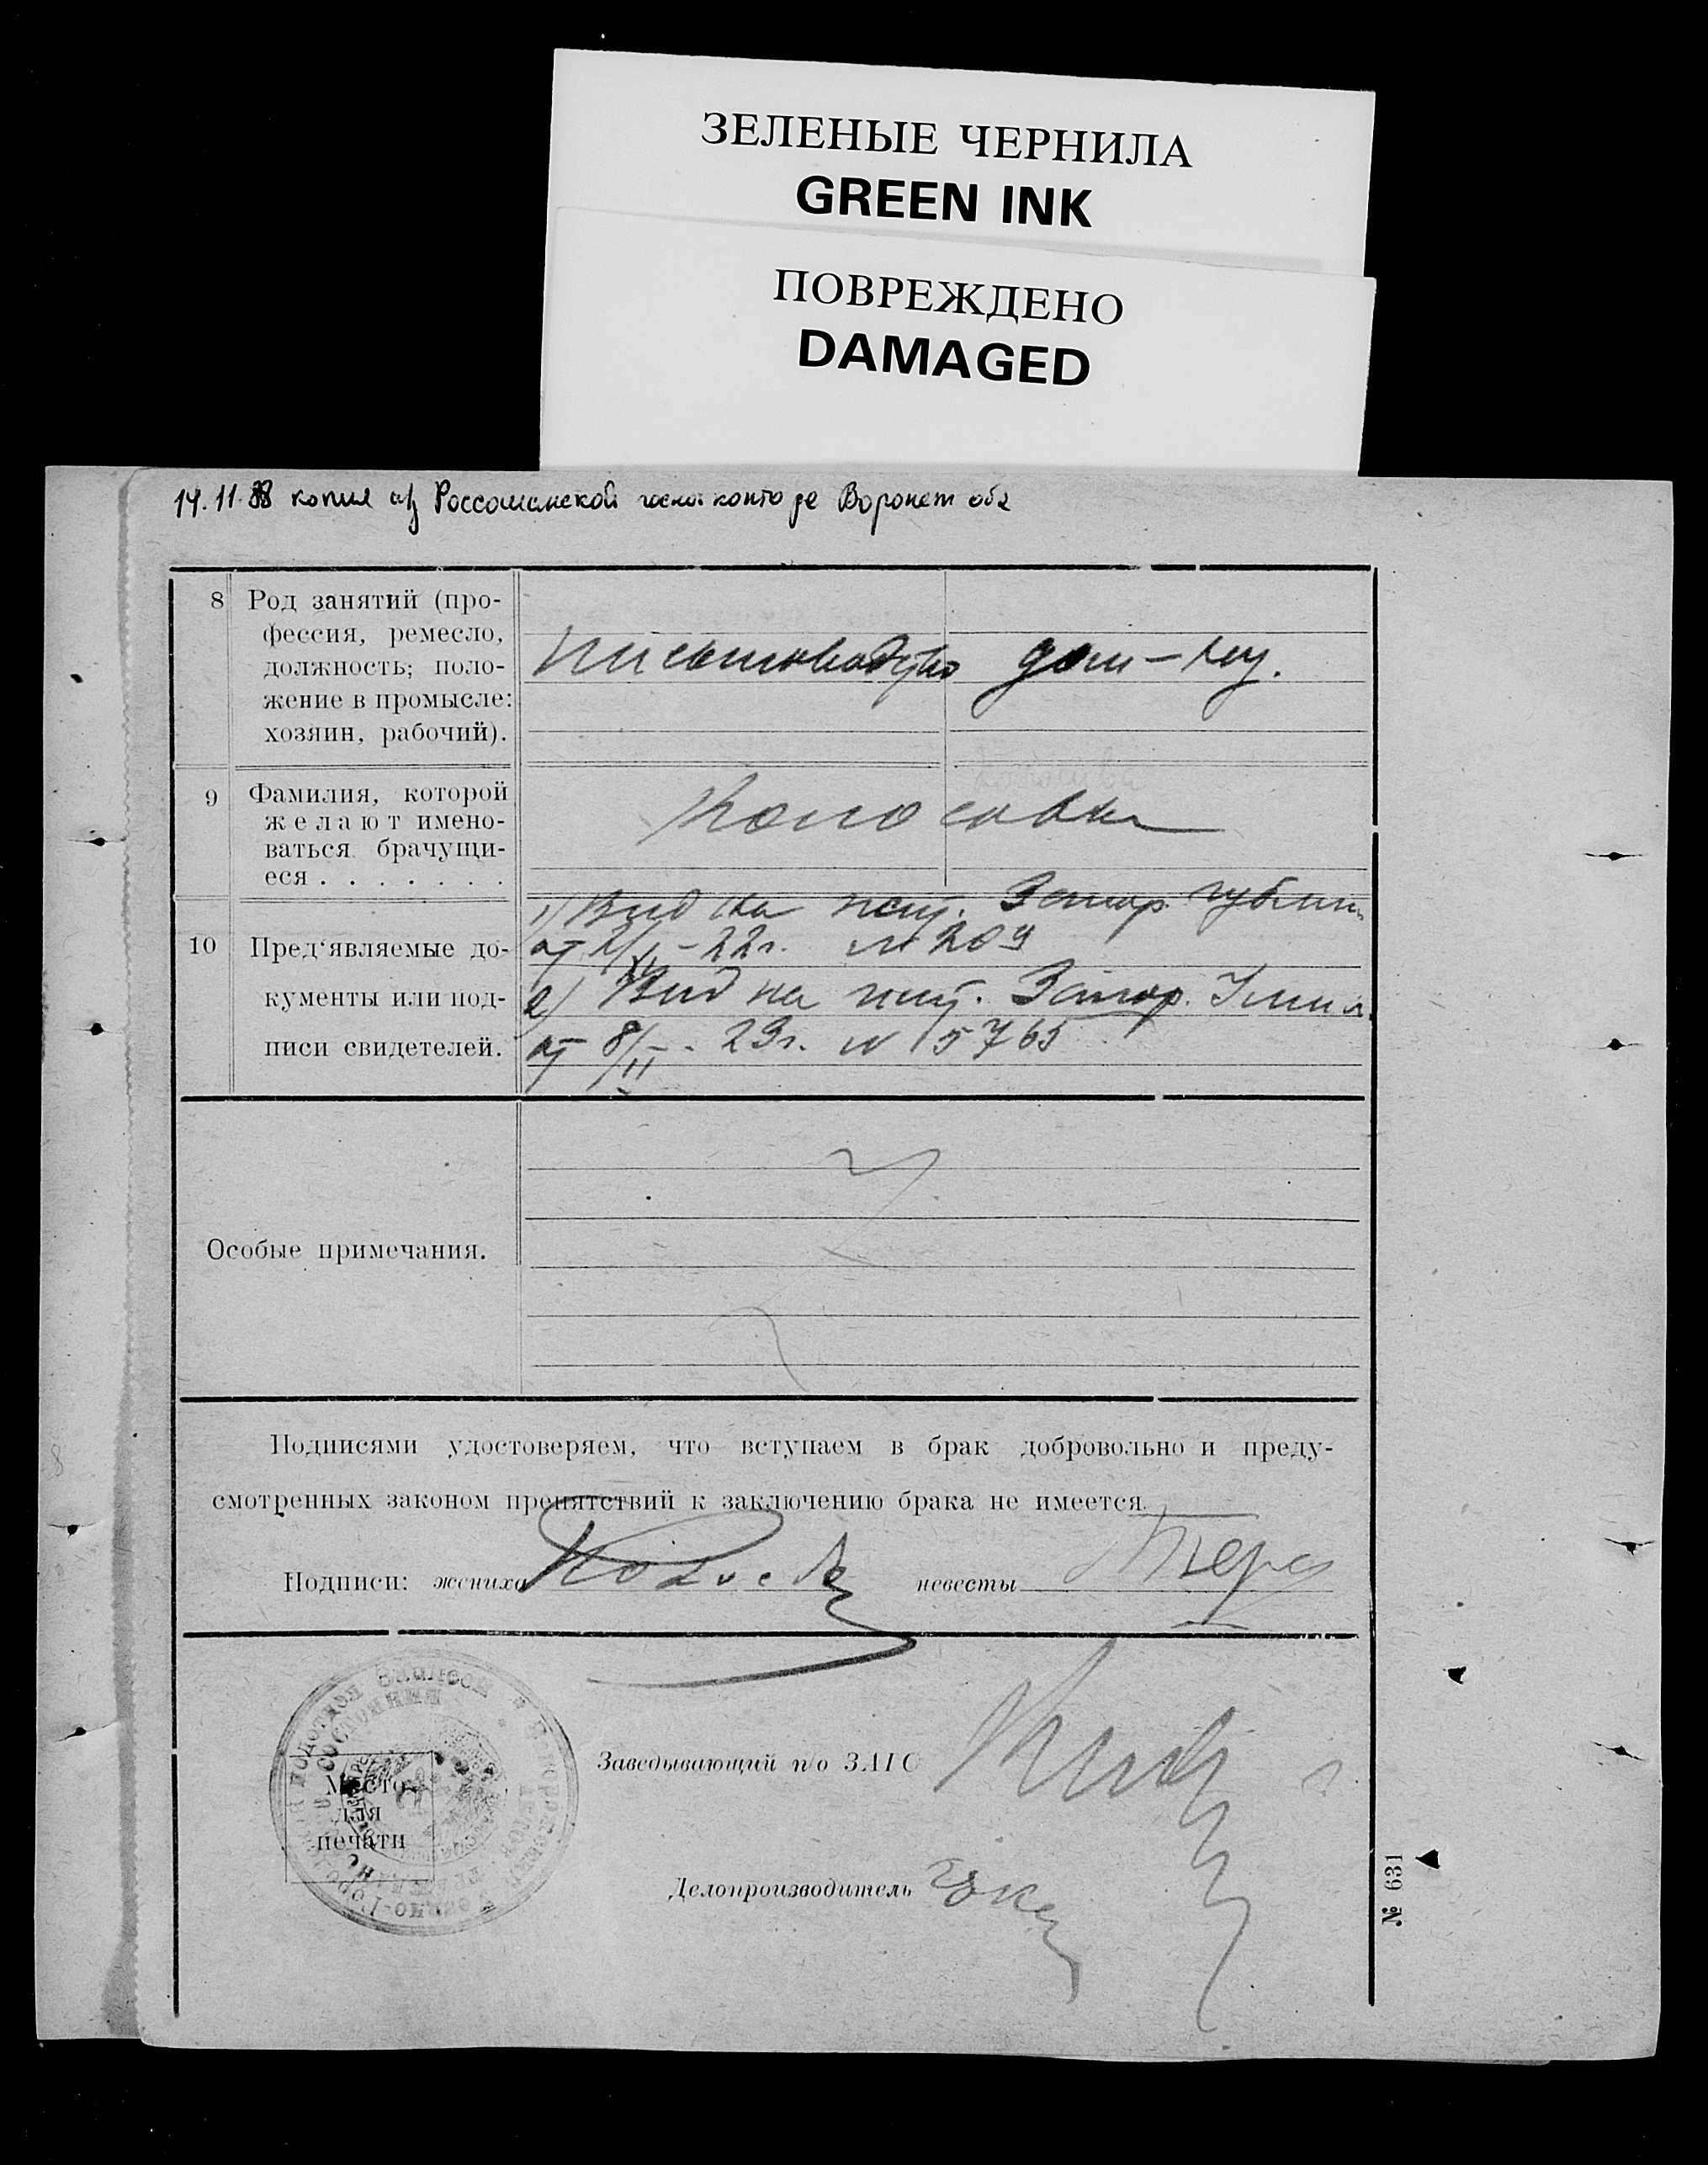 ЗЕЛЕНЫЕ ЧЕРНИЛА
GREEN INK
ПОВРЕЖДЕНО
DAMAGED
14.11.88 копия Россошанской конторе Воронеж обл
8 Род занятий (про-
фессия, ремесло,
должность; поло-
жение в промысле:
хозяин, рабочий).
дом-
9 Фамилия, которой
желают имено-
ваться брачущи-
еся . . . . . . .
10 Пред'являемые до-
кументы или под-
писи свидетелей.
1) Вид на жит. Запор.
от -22г. № 209
2) Вид на жит. Запор.
от 8/II - 23г. № 5765
Особые примечания.
Подписями удостоверяем, что вступаем в брак добровольно и преду-
смотренных законом препятствий к заключению брака не имеется.
Подписи: жениха невесты
Заведывающий п/о ЗАГС
Место
для
печати
Делопроизводитель
№ 631